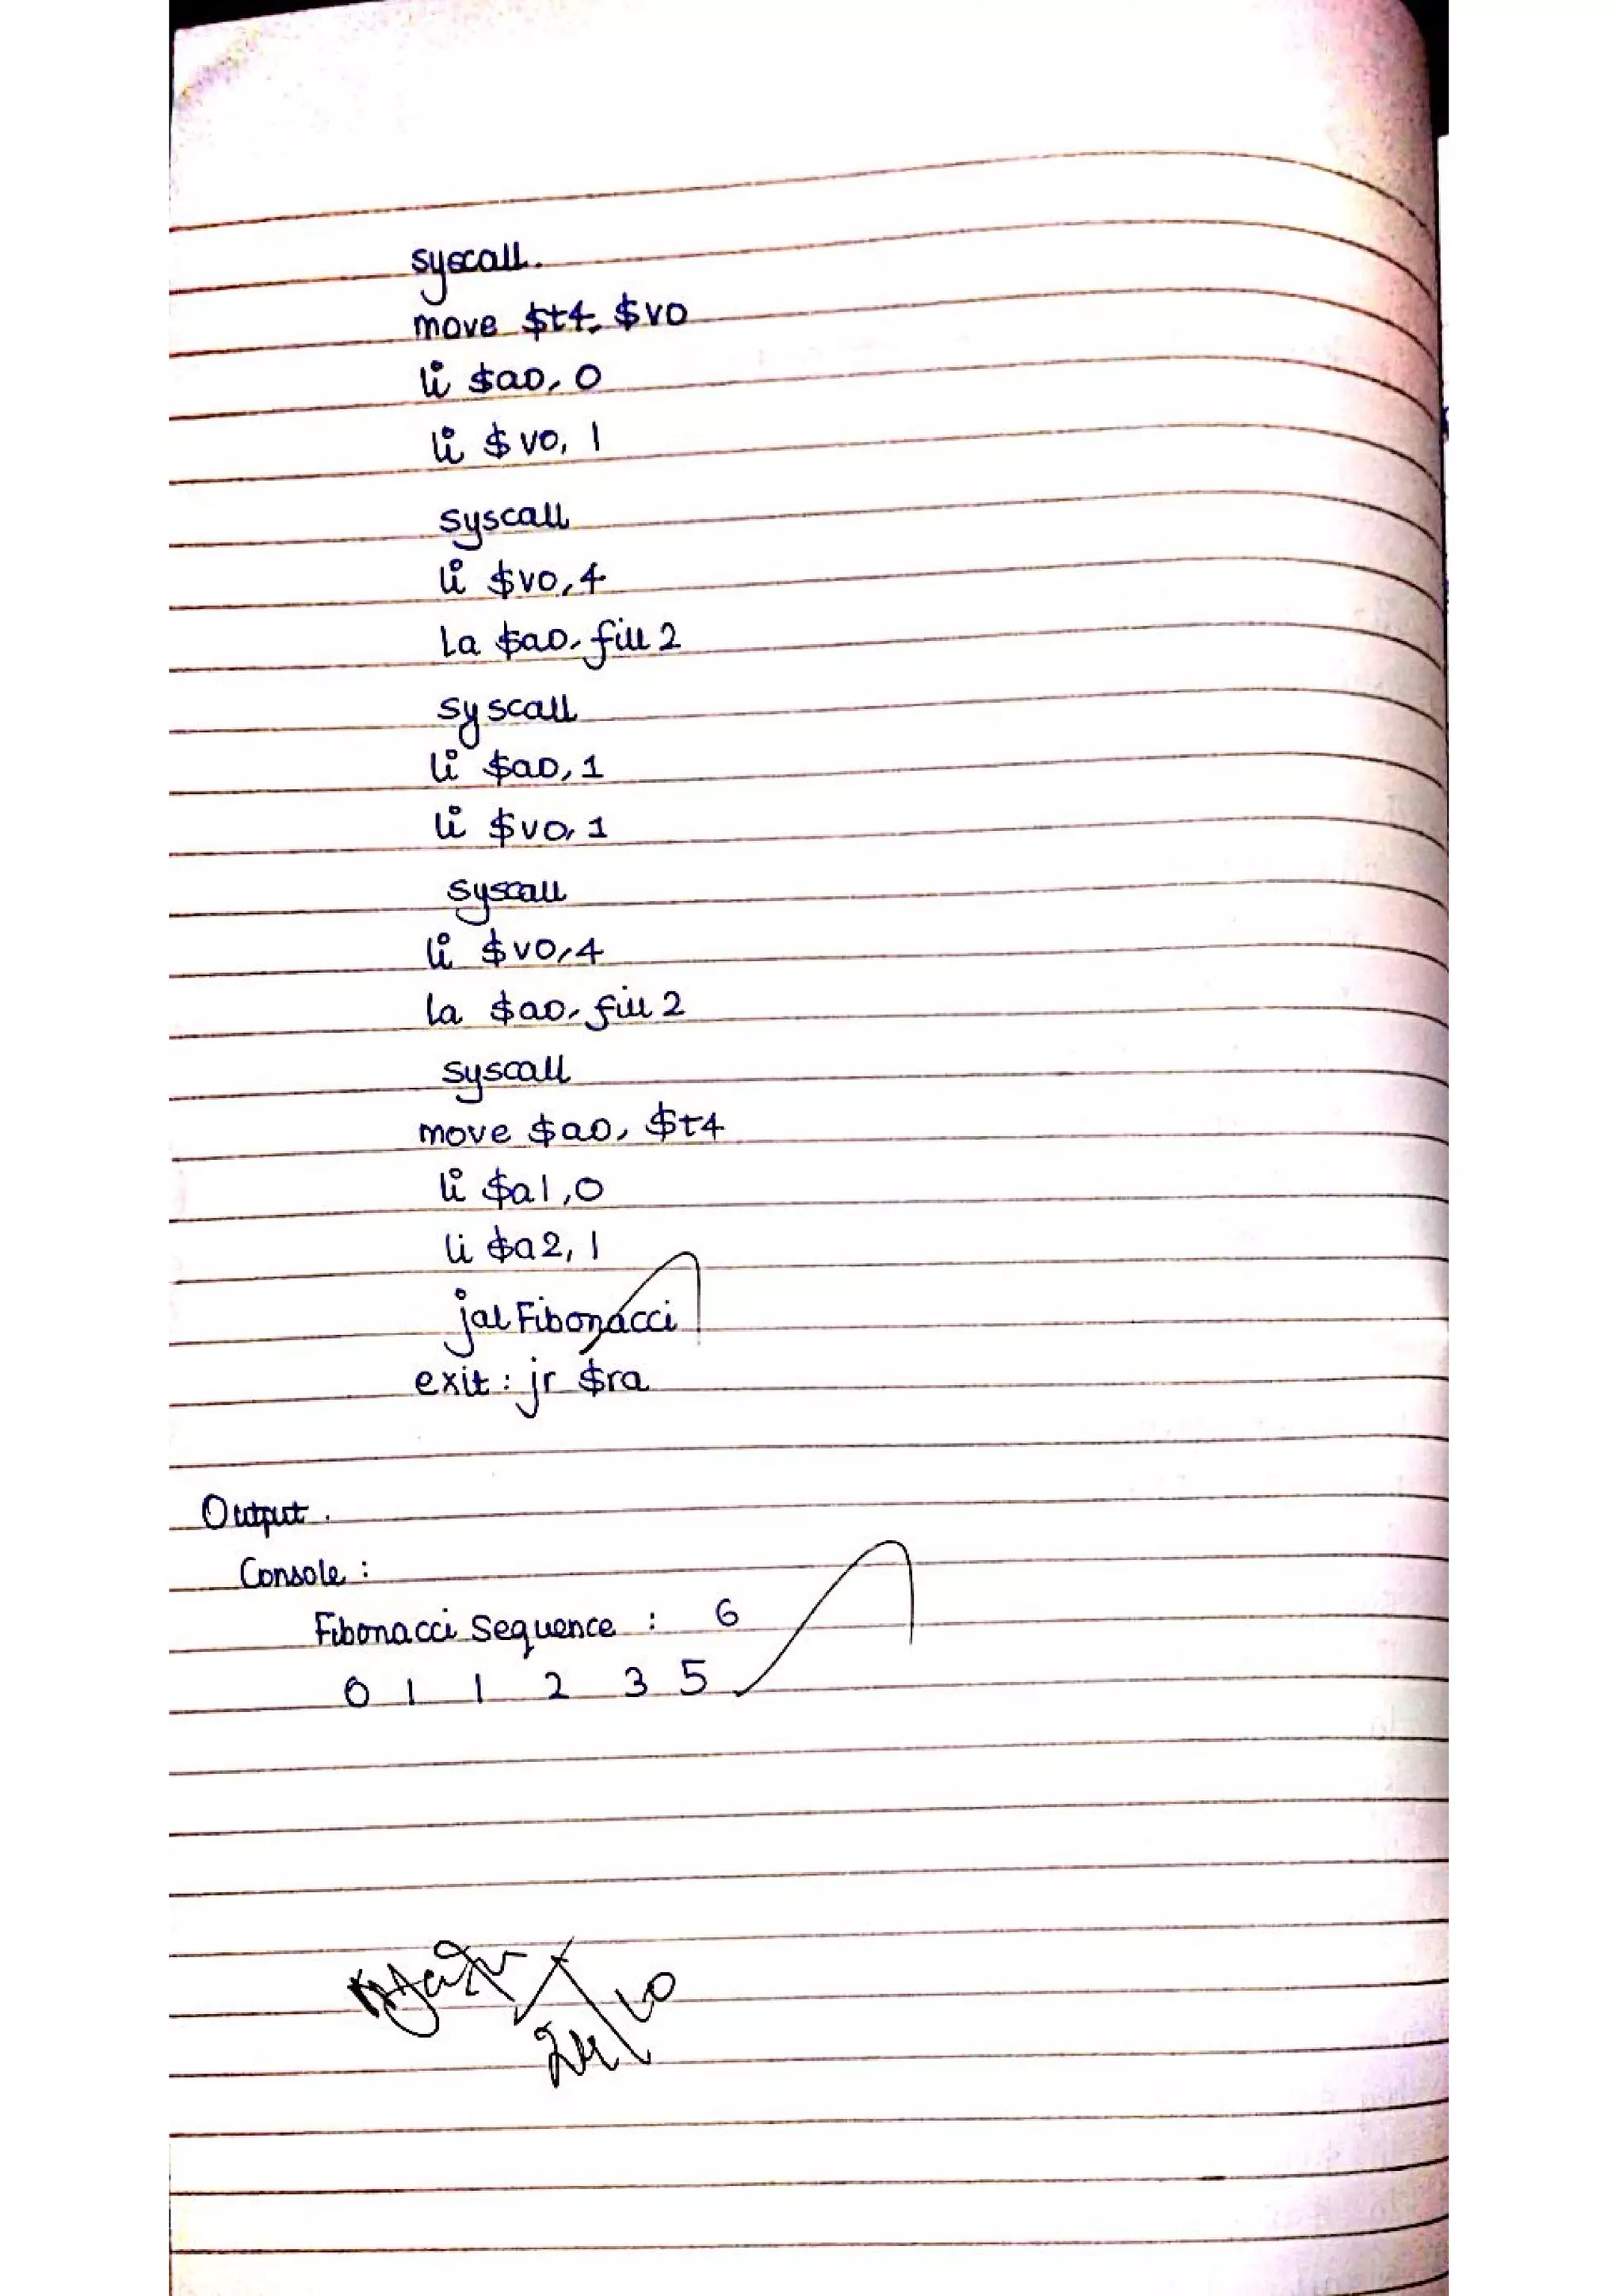 syscall.
move $t4, $v0
li $a0, 0
li $v0, 1
syscall
li $v0, 4
la $a0, fill 2
syscall
li $a0, 1
li $v0, 1
syscall
li $v0, 4
la $a0, fill 2
syscall
move $a0, $t4
li $a1, 0
li $a2, 1
jal Fibonacci
exit : jr $ra
Output.
Console :
Fibonacci Sequence : 6
0 1 1 2 3 5
24/10